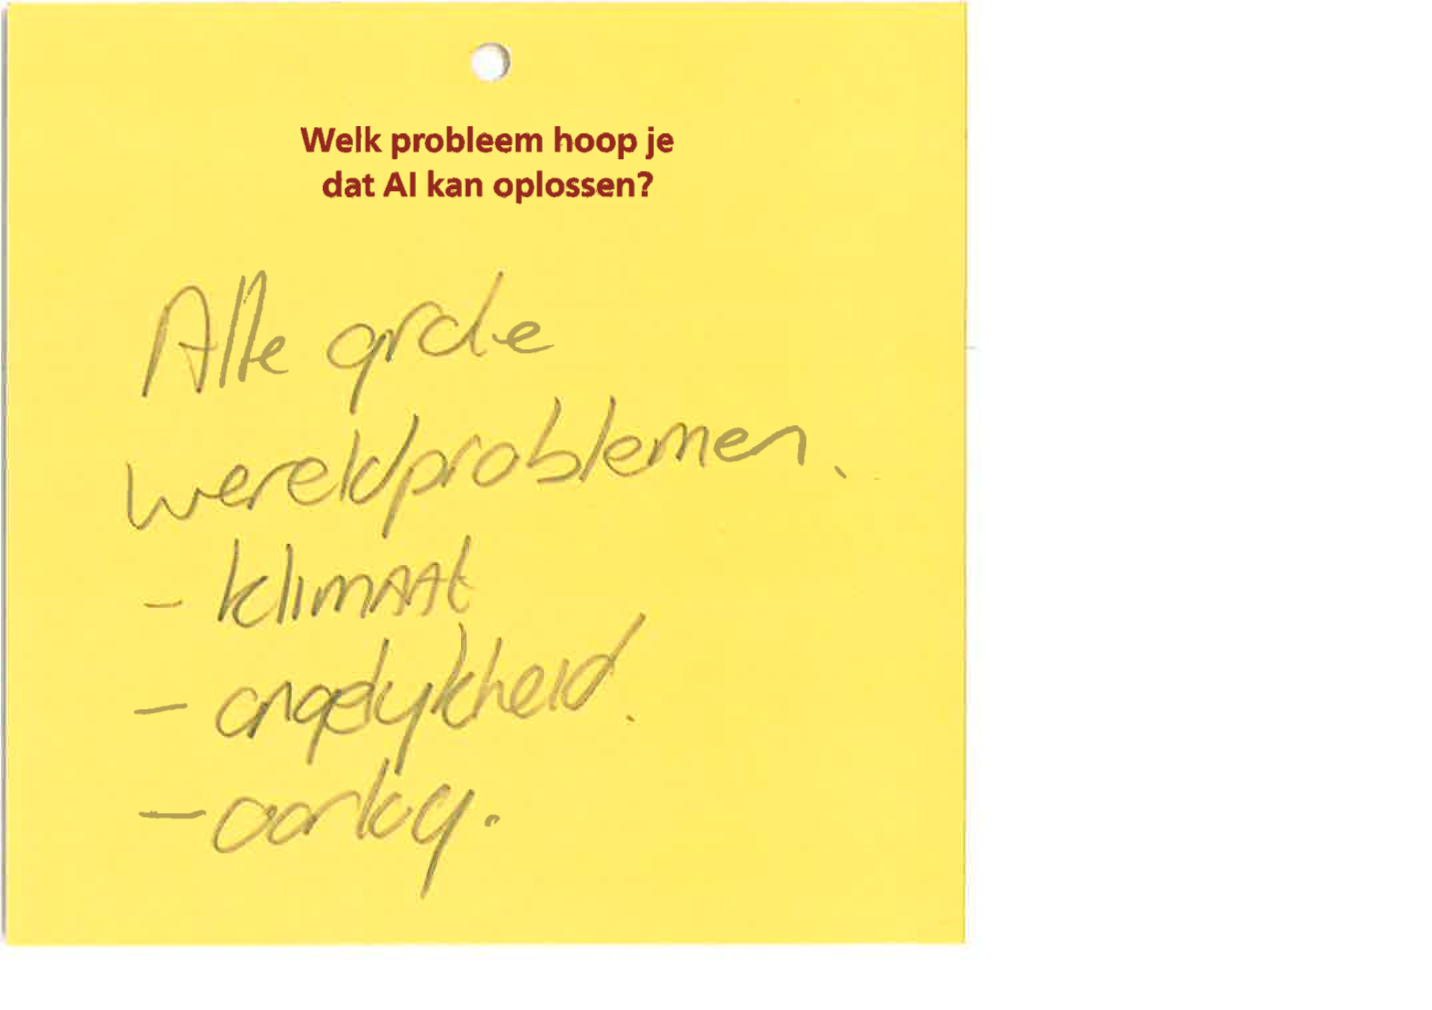 Welk probleem hoop je
dat AI kan oplossen?
Alle grote
wereldproblemen.
- klimAAt
- ongelijkheid.
- oorlog.